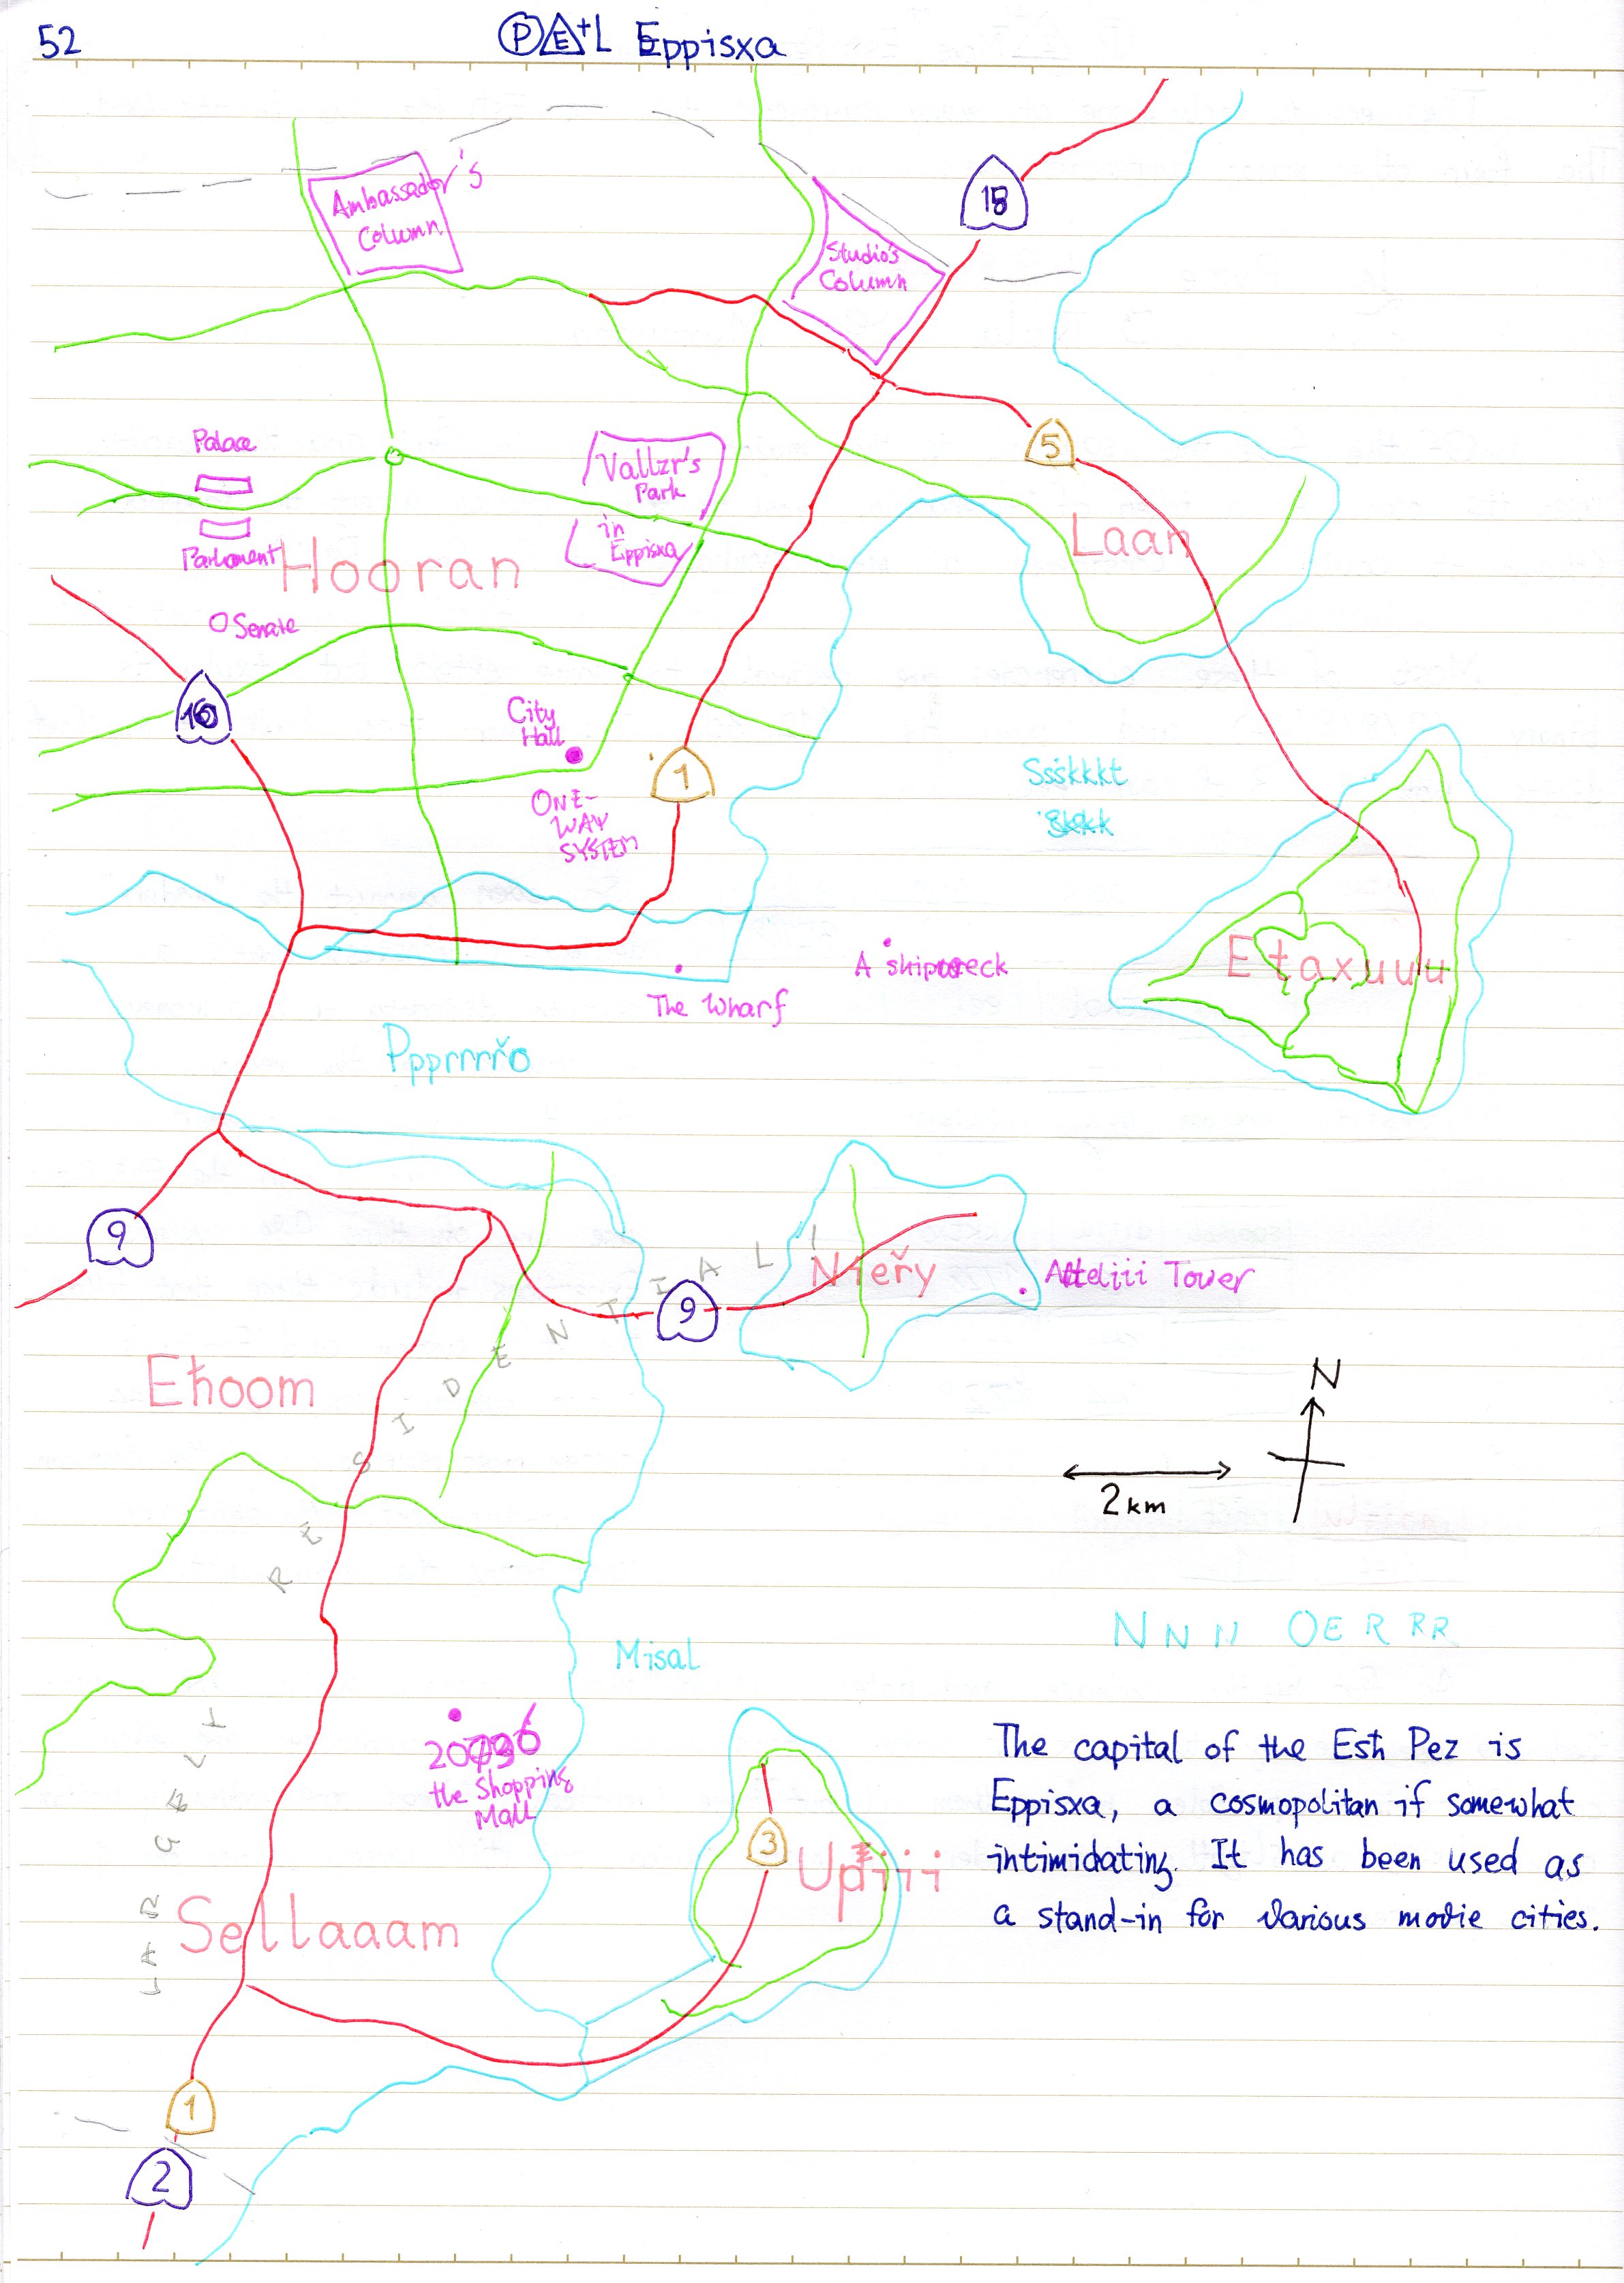 52
PE+L Eppisxa
Ambassador's
Column
18
Studio's
Column
5
Palace
Vallzr's
Park
in
Eppisxa
Parliament
Hooran
Laan
Senate
16
City
Hall
1
ONE-
WAY
SYSTEM
Ssškkkt
A shipwreck
Etaxuuu
The Wharf
Ppprrrrřo
9
9
Nieřy
Atteliii Tower
Eħoom
LARGELY RESIDENTIAL
N
2 km
Misal
NNN OERRRR
the Shopping
Mall
3
Upiii
The capital of the Esħ Pez is
Eppisxa, a cosmopolitan if somewhat
intimidating. It has been used as
a stand-in for various movie cities.
Sellaaam
1
2